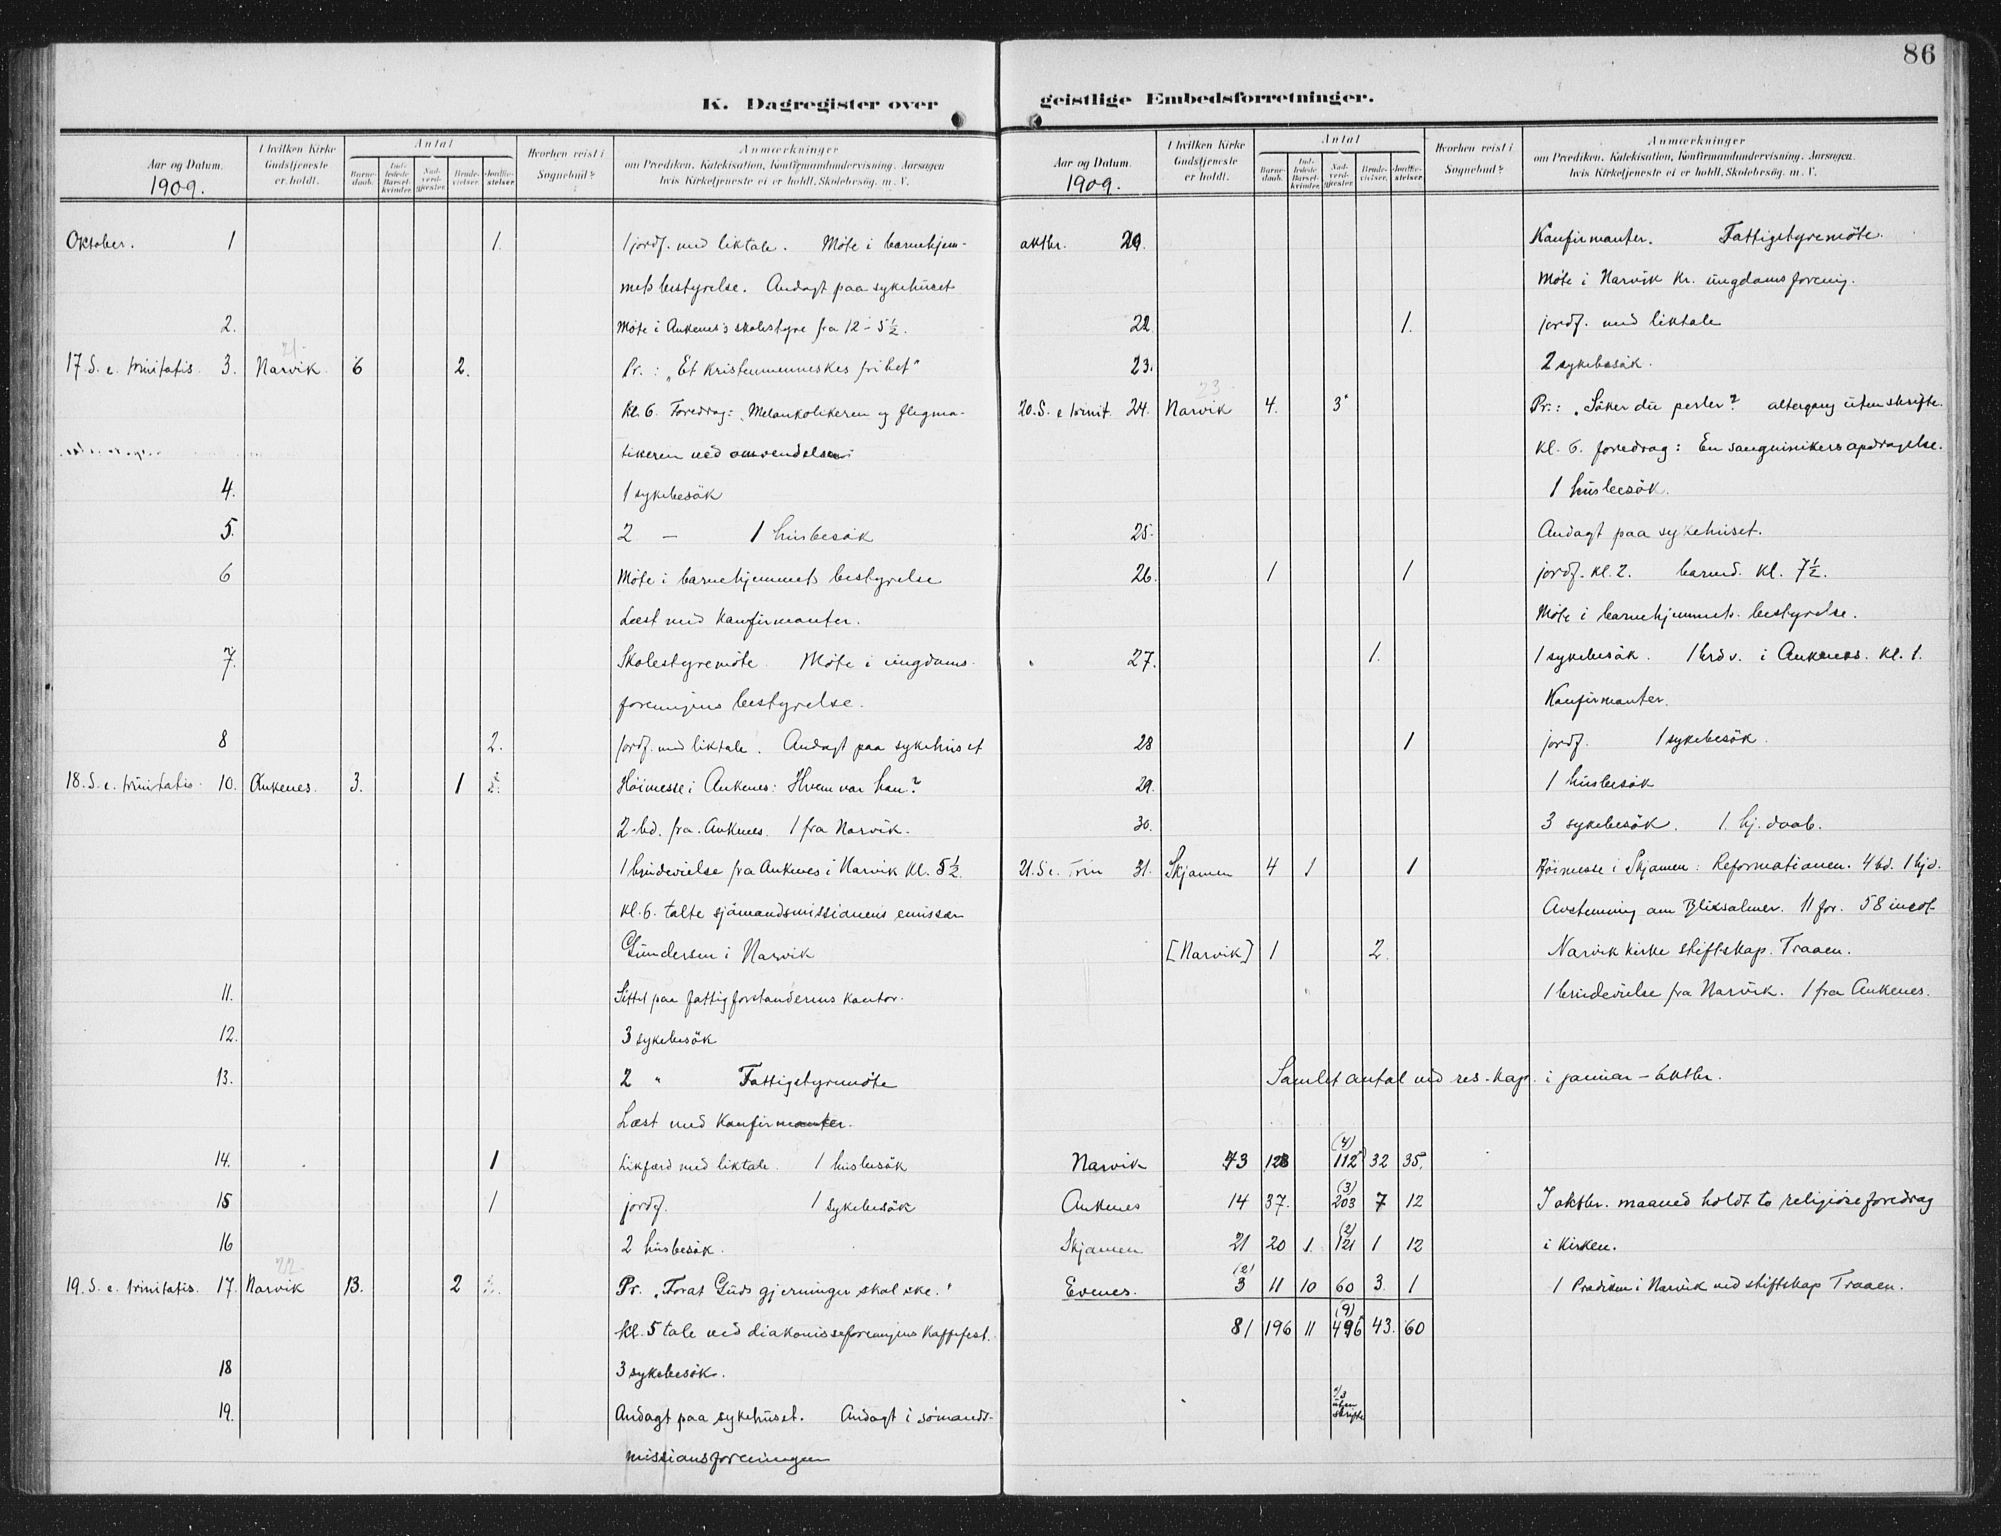 86
K. Dagregister over
geistlige Embedsforretninger.
Aar og Datum.
1909.
I hvilken Kirke Gudstjeneste er holdt.
Antal
Barne-daab.
Ind-ledede Barsel-kvinder.
Nad-verd-gjester.
Brude-vielser.
Jordfæ-stelser.
Hvorhen reist i Sognebud?
Anmærkninger
om Prædiken, Katekisation, Konfirmandundervisning, Aarsagen
hvis Kirketjeneste ei er holdt, Skolebesøg. m. V.
Oktober. 1 1. 1 jordf. med liktale. Møte i barnehjem-
mets bestyrelse. Andagt paa sykehuset
2. Møte i Ankenes's skolestyre fra 12 - 5 1/2.
21
17. S. e. trinitatis 3. Narvik 6 2. Pr.: "Et kristenmenneskes frihet"
kl. 6. Foredrag: Melankolikeren og flegma-
tikeren ved omvendelsen
4. 1 sykebesök
5. 2 — 1 husbesök
6 Møte i barnehjemmets bestyrelse
Læst med konfirmanter.
7. Skolestyremöte. Møte i ungdoms-
foreningens bestyrelse.
8 2. jordf. med liktale. Andagt paa sykehuset
18. S. e. trinitatis. 10. Ankenes. 3. 1 Höimesse i Ankenes: Hvem var han?
2 bd. fra Ankenes. 1 fra Narvik.
1 brudevielse fra Ankenes i Narvik kl. 5 1/2.
kl. 6. talte sjömandsmissionens emissær
Gundersen i Narvik
11. Sittet paa fattigforstanderens kontor.
12. 3 sykebesök
13. 2 " Fattigstyremöte
Læst med konfirmanter.
14. 1 Likfærd med liktale. 1 husbesök
15 1 jordf. 1 sykebesök
16 2 husbesök.
22
19. S. e. trinitatis. 17. Narvik 13. 2 Pr. "Forat Guds gjerninger skal ske."
kl. 5 tale ved diakonisseforeningens kaffefest.
18 3 sykebesök.
19. Andagt paa sykehuset. Andagt i sömands-
missionsforeningen
Aar og Datum.
1909.
I hvilken Kirke Gudstjeneste er holdt.
Antal
Barne-daab.
Ind-ledede Barsel-kvinder.
Nad-verd-gjester.
Brude-vielser.
Jordfæ-stelser.
Hvorhen reist i Sognebud?
Anmærkninger
om Prædiken, Katekisation, Konfirmandundervisning, Aarsagen
hvis Kirketjeneste ei er holdt, Skolebesøg. m. V.
oktbr. Konfirmanter. Fattigstyremöte.
Møte i Narvik kr. ungdomsforening.
22 1. jordf. med liktale
23. 2 sykebesök.
23
20. S. e trinit. 24. Narvik 4. 3 Pr.: "Söker du perler? altergang uten skrifte.
kl. 6. foredrag: En sangvinikers opdragelse.
1 husbesök.
25. Andagt paa sykehuset.
26. 1 1 jordf. kl. 2. barned. kl. 7 1/2.
Møte i barnehjemmets bestyrelse.
27. 1. 1 sykebesök. 1 brdv. i Ankenes. kl. 1.
Konfirmanter.
28 1 jordf. 1 sykebesök.
29. 1 husbesök
30. 3 sykebesök. 1. hj. daab.
21. S e. Trin 31. Skjomen 4 1 1 Höimesse i Skjomen: Reformationen. 4 bd. 1 hjd.
Avstemning om Blixsalmer. 11 for. 58 imot
[Narvik] 1 2. Narvik kirke stiftskap. Traaen.
1 brudevielse fra Narvik. 1 fra Ankenes.
Samlet antal ved res. kap. i januar - oktbr.
(4)
Narvik 73 128 112 32 35.
(3)
Ankenes 14 37. 203 7 12 I oktbr. maaned holdt to religiöse foredrag
(2)
Skjomen 21 20 1. 121 1 12 i kirken.
(2)
Evenes. 3 11 10 60 3. 1 1 Prædiken i Narvik ved stiftskap Traaen.
(9)
81 196 11 496 43. 60
uten
skrifte